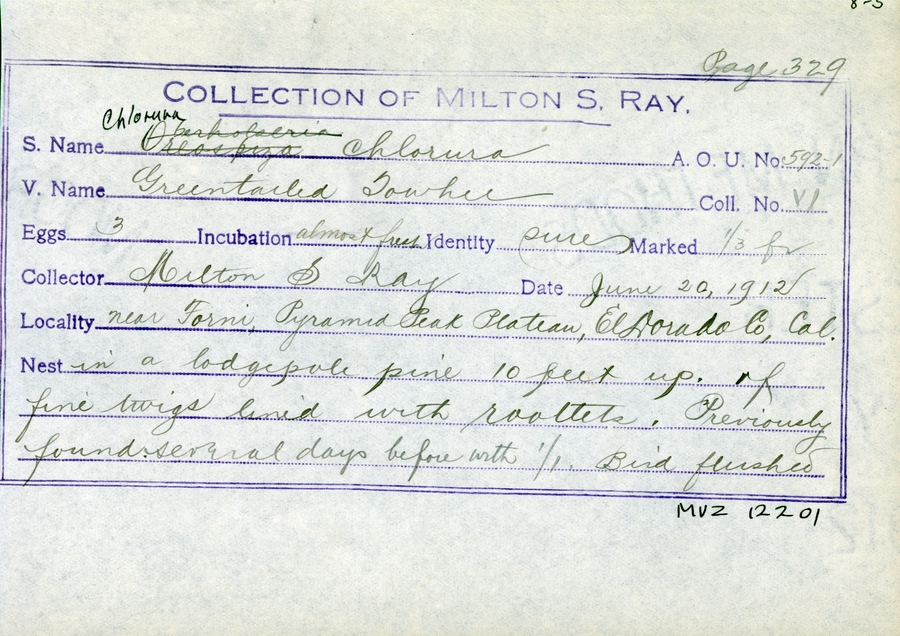 8-5
Page 329
COLLECTION OF MILTON S. RAY.
Chlorura
Oberholseria
S. Name Oreospiza chlorura A. O. U. No. 592-1
V. Name Greentailed Towhee Coll. No. V1
Eggs 3 Incubation almost fresh Identity sure Marked 1/3 fr
Collector Milton S Ray Date June 20, 1912
Locality near Forni, Pyramid Peak Plateau, El Dorado Co, Cal.
Nest in a lodgepole pine 10 feet up. of
fine twigs lined with roottets. Previously
found several days before with 1/1. Bird flushed
MVZ 12201